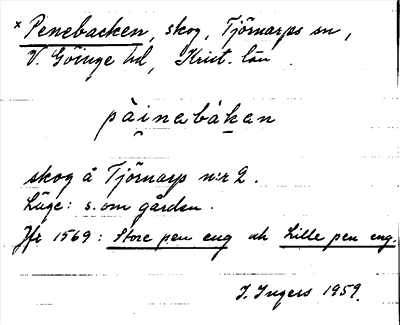 × Penebacken, skog, Tjörnarps sn,
V. Göinge hd, Krist. län.
pàinabákan
skog å Tjörnarp n:r 2.
Läge: s. om gården.
Jfr 1569: Store pen eng ok Lille pen eng.
I. Ingers 1959.